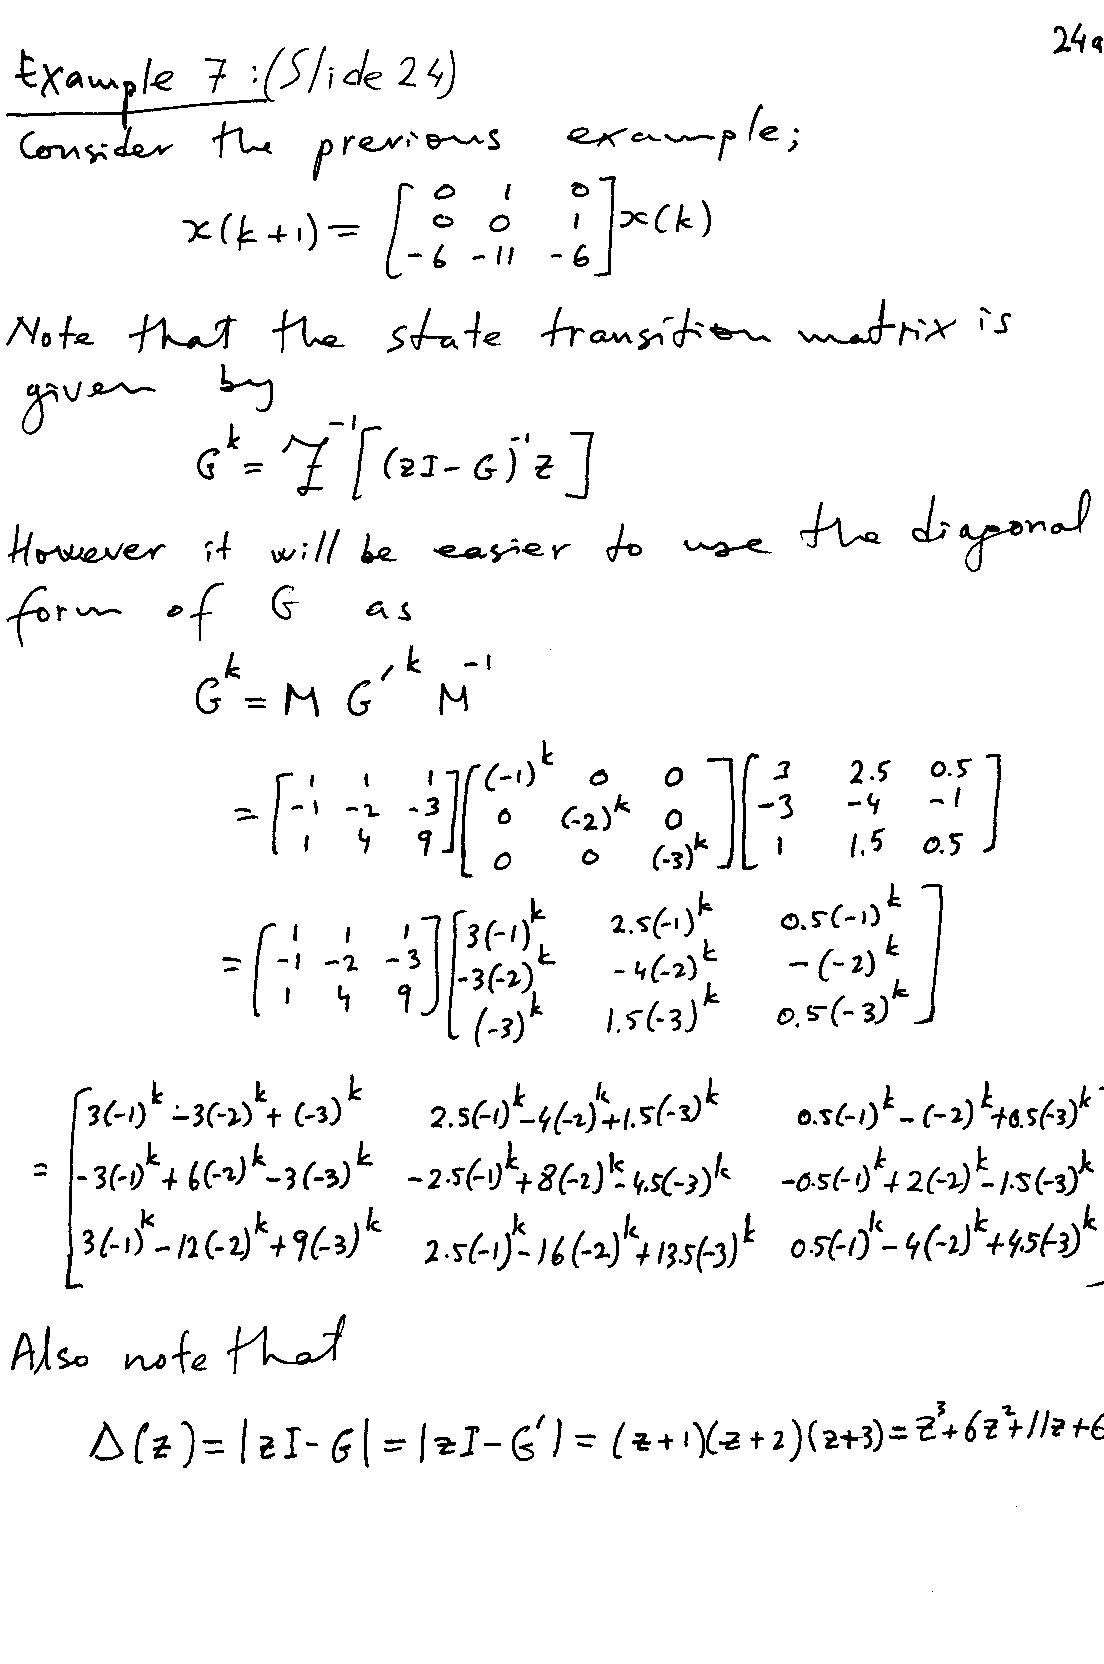 24a
Example 7 :(Slide 24)
Consider the previous example;
x(k+1) = [0 1 0; 0 0 1; -6 -11 -6] x(k)
Note that the state transition matrix is
given by
G^k = Z^-1 [(zI - G)^-1 z]
However it will be easier to use the diagonal
form of G as
G^k = M G'^k M^-1
= [1 1 1; -1 -2 -3; 1 4 9] [(-1)^k 0 0; 0 (-2)^k 0; 0 0 (-3)^k] [3 2.5 0.5; -3 -4 -1; 1 1.5 0.5]
= [1 1 1; -1 -2 -3; 1 4 9] [3(-1)^k 2.5(-1)^k 0.5(-1)^k; -3(-2)^k -4(-2)^k -(-2)^k; (-3)^k 1.5(-3)^k 0.5(-3)^k]
= [3(-1)^k - 3(-2)^k + (-3)^k 2.5(-1)^k - 4(-2)^k + 1.5(-3)^k 0.5(-1)^k - (-2)^k + 0.5(-3)^k
-3(-1)^k + 6(-2)^k - 3(-3)^k -2.5(-1)^k + 8(-2)^k - 4.5(-3)^k -0.5(-1)^k + 2(-2)^k - 1.5(-3)^k
3(-1)^k - 12(-2)^k + 9(-3)^k 2.5(-1)^k - 16(-2)^k + 13.5(-3)^k 0.5(-1)^k - 4(-2)^k + 4.5(-3)^k]
Also note that
Δ(z) = |zI - G| = |zI - G'| = (z+1)(z+2)(z+3) = z^3 + 6z^2 + 11z + 6